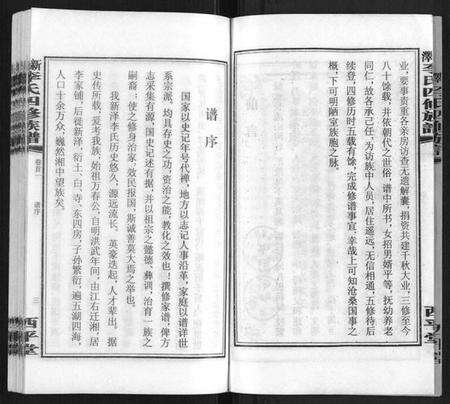 業，要事責重各亲房访查无遗解囊，捐资共建千秋大业，三修至今
八十馀载，并依朝代之世俗，谱中所书，女招男婿平等，抚幼养老
同仁，故各承己任，为访族中人员，居住遥远，无信相通，五修待后
续登，四修历时五载有馀，完成修谱事宜，幸哉上可知沧桑国事之
概，下可明陋宗族胞之脉。
谱序
国家以史记年号代禅，地方以志记人事沿革，家庭以谱详世
系宗派，均具存史之功，资治之能，教化之效也！撰修家谱，俾方
志采集有源，国史记述有据，并以祖宗之懿德，彝训，治育一族之
嗣裔，使之修身治家，效民报国，斯诚善莫大焉之举也。
我新泽李氏历史悠久，源远流长。英豪迭起，人才辈出。据
史传所载，爰考我族，始祖万春公，自明洪武年间，由江右迁湘，居
李家铺，后徙新泽，衍土、白、寺、东四房，子孙繁衍，遍五湖四海，
人口十余万众，巍然湘中望族矣。
新泽李氏四修族谱
卷首
谱序
三
西平堂